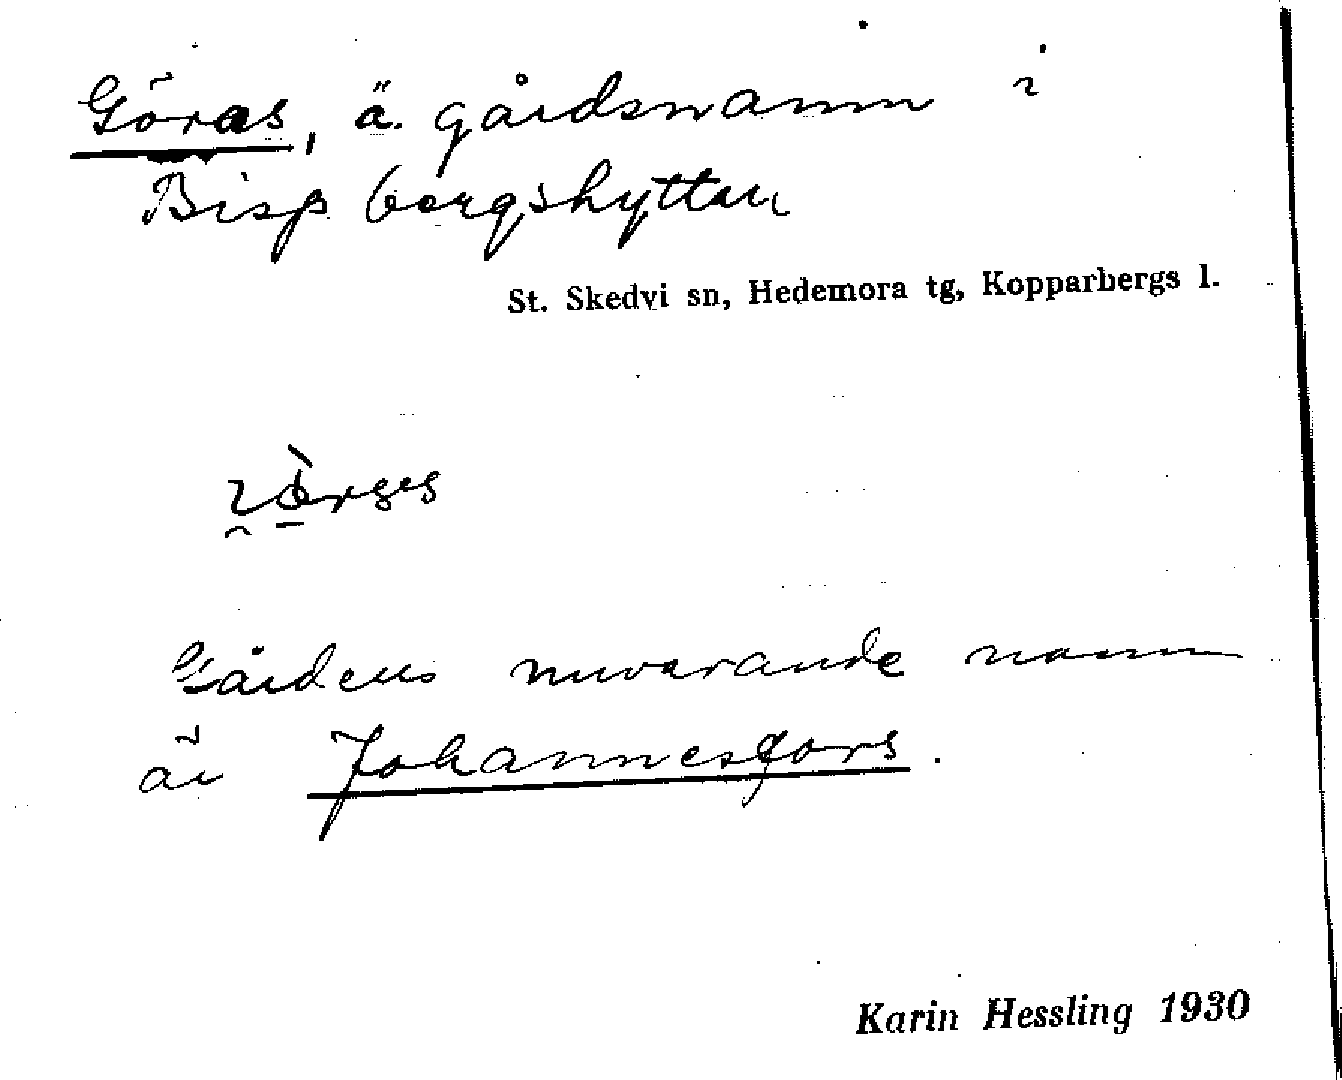 Göras, ä. gårdsnamn i
Bispbergshyttan
St. Skedvi sn, Hedemora tg, Kopparbergs l.
Gårdens nuvarande namn
är Johannesfors.
Karin Hessling 1930